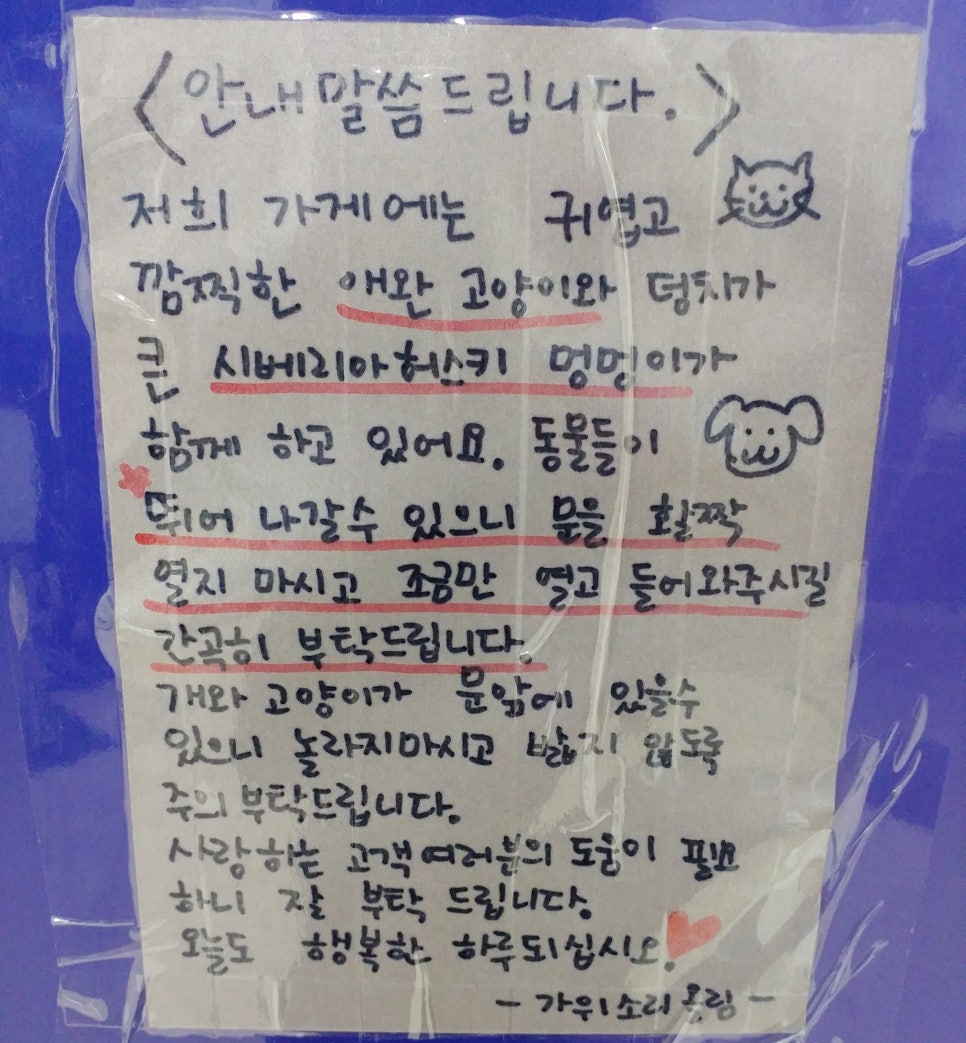 <안내말씀드립니다.>
저희 가게에는 귀엽고
깜찍한 애완 고양이와 덩치가
큰 시베리아허스키 멍멍이가
함께 하고 있어요. 동물들이
뛰어 나갈수 있으니 문을 활짝
열지 마시고 조금만 열고 들어와주시길
간곡히 부탁드립니다.
개와 고양이가 문앞에 있을수
있으니 놀라지마시고 밟지 않도록
주의 부탁드립니다.
사랑하는 고객여러분의 도움이 필요
하니 잘 부탁 드립니다.
오늘도 행복한 하루되십시오.
- 가위소리 올림 -